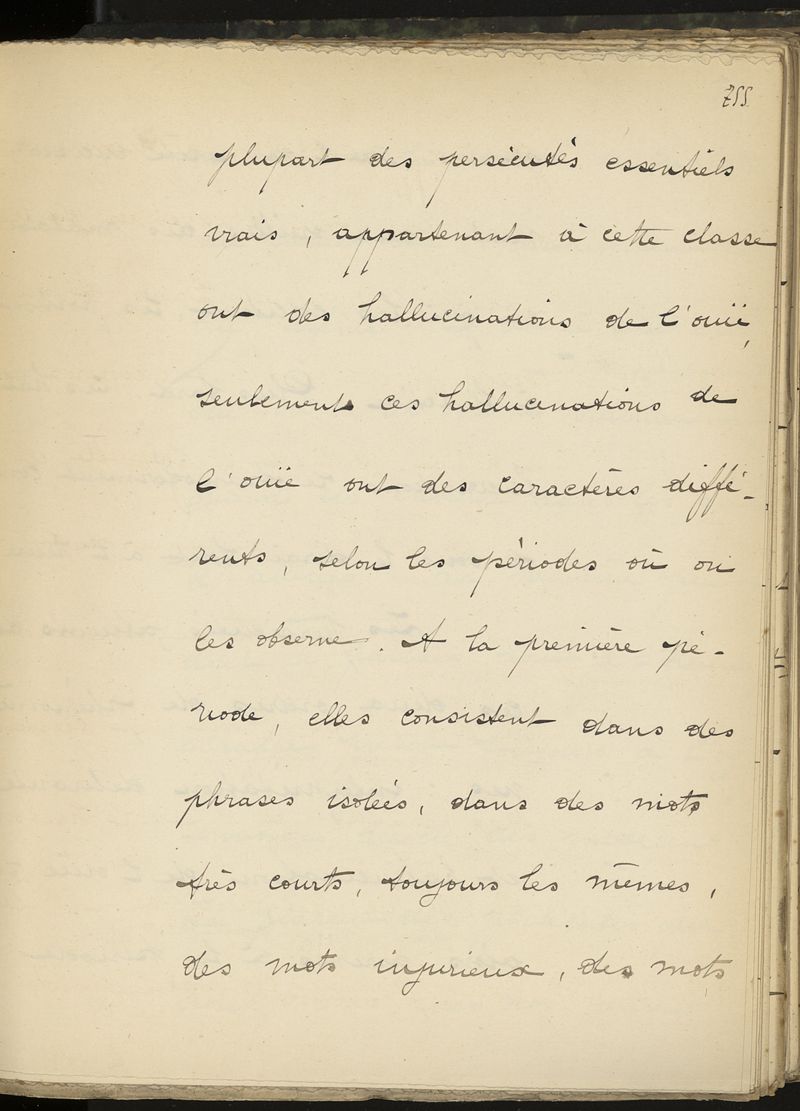 755
plupart des persécutés essentiels
vrais, appartenant à cette classe
ont des hallucinations de l'ouïe,
seulement ces hallucinations de
l'ouïe ont des caractères diffé-
rents, selon les périodes où on
les observe. A la première pé-
riode, elles consistent dans des
phrases isolées, dans des mots
très courts, toujours les mêmes,
des mots injurieux, des mots